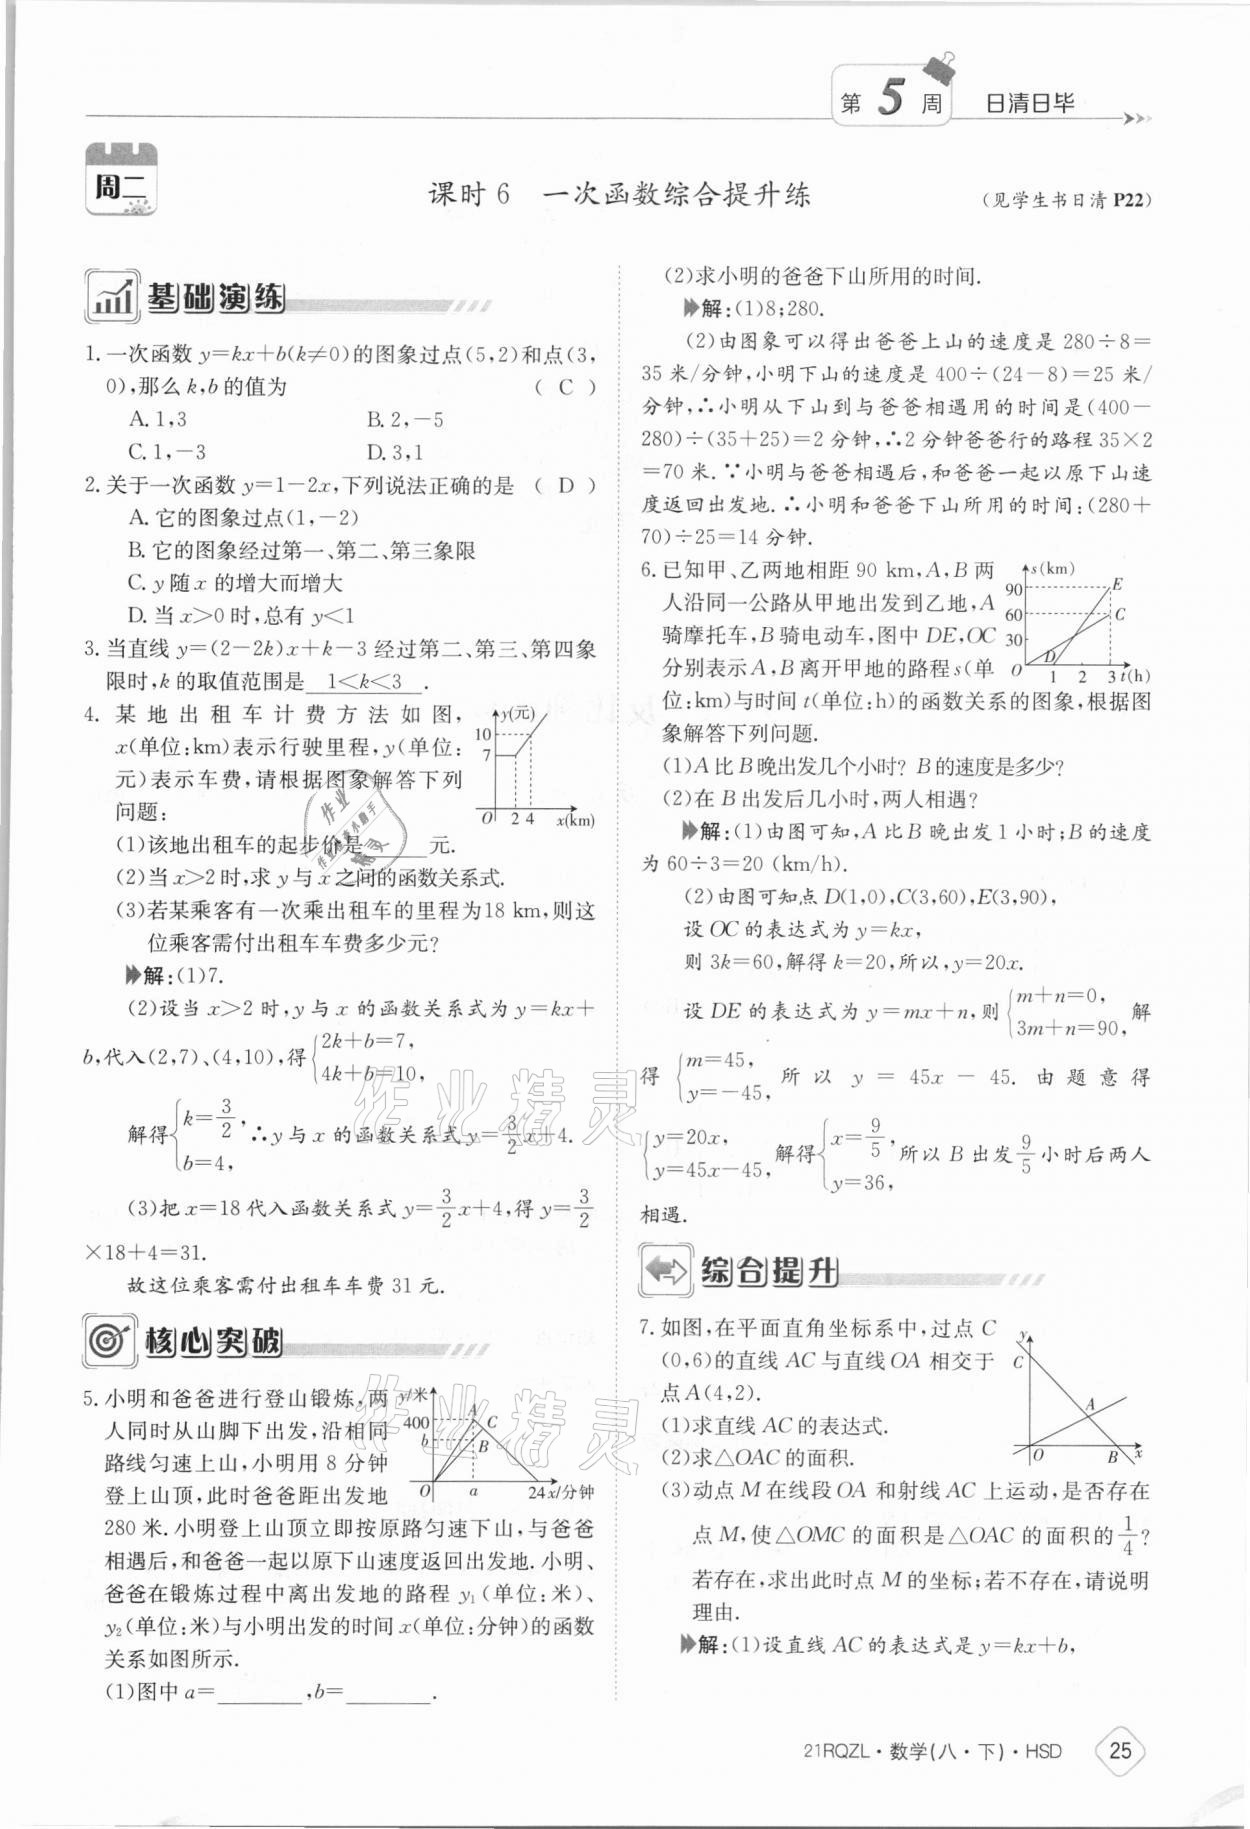 第5周 日清日毕
周二
课时6 一次函数综合提升练
(见学生书日清P22)
基础演练
1.一次函数y=kx+b(k≠0)的图象过点(5,2)和点(3,
0),那么k,b的值为 ( C )
A.1,3 B.2,-5
C.1,-3 D.3,1
2.关于一次函数y=1-2x,下列说法正确的是 ( D )
A.它的图象过点(1,-2)
B.它的图象经过第一、第二、第三象限
C.y随x的增大而增大
D.当x>0时,总有y<1
3.当直线y=(2-2k)x+k-3经过第二、第三、第四象
限时,k的取值范围是 1<k<3 .
4.某地出租车计费方法如图,
x(单位:km)表示行驶里程,y(单位:
元)表示车费,请根据图象解答下列
问题:
y(元)
10
7
O 2 4 x(km)
(1)该地出租车的起步价是____元.
(2)当x>2时,求y与x之间的函数关系式.
(3)若某乘客有一次乘出租车的里程为18 km,则这
位乘客需付出租车车费多少元?
解:(1)7.
(2)设当x>2时,y与x的函数关系式为y=kx+
b,代入(2,7)、(4,10),得{2k+b=7,
4k+b=10,
解得{k=3/2, b=4, ∴y与x的函数关系式y=3/2x+4.
(3)把x=18代入函数关系式y=3/2x+4,得y=3/2
×18+4=31.
故这位乘客需付出租车车费31元.
核心突破
5.小明和爸爸进行登山锻炼,两
人同时从山脚下出发,沿相同
路线匀速上山,小明用8分钟
登上山顶,此时爸爸距出发地
y/米
400
b
A
C
B
O a 24 x/分钟
280米.小明登上山顶立即按原路匀速下山,与爸爸
相遇后,和爸爸一起以原下山速度返回出发地.小明、
爸爸在锻炼过程中离出发地的路程y₁(单位:米)、
y₂(单位:米)与小明出发的时间x(单位:分钟)的函数
关系如图所示.
(1)图中a=______,b=______.
(2)求小明的爸爸下山所用的时间.
解:(1)8;280.
(2)由图象可以得出爸爸上山的速度是280÷8=
35米/分钟,小明下山的速度是400÷(24-8)=25米/
分钟,∴小明从下山到与爸爸相遇用的时间是(400-
280)÷(35+25)=2分钟,∴2分钟爸爸行的路程35×2
=70米.∵小明与爸爸相遇后,和爸爸一起以原下山速
度返回出发地.∴小明和爸爸下山所用的时间:(280+
70)÷25=14分钟.
6.已知甲、乙两地相距90 km,A,B两
人沿同一公路从甲地出发到乙地,A
骑摩托车,B骑电动车,图中DE,OC
分别表示A,B离开甲地的路程s(单
s(km)
90
60
30
E
C
O D 1 2 3 t(h)
位:km)与时间t(单位:h)的函数关系的图象,根据图
象解答下列问题.
(1)A比B晚出发几个小时?B的速度是多少?
(2)在B出发后几小时,两人相遇?
解:(1)由图可知,A比B晚出发1小时;B的速度
为60÷3=20(km/h).
(2)由图可知点D(1,0),C(3,60),E(3,90),
设OC的表达式为y=kx,
则3k=60,解得k=20,所以,y=20x.
设DE的表达式为y=mx+n,则{m+n=0, 3m+n=90, 解
得{m=45, y=-45, 所以y=45x-45.由题意得
{y=20x, y=45x-45, 解得{x=9/5, y=36, 所以B出发9/5小时后两人
相遇.
综合提升
7.如图,在平面直角坐标系中,过点C
(0,6)的直线AC与直线OA相交于
点A(4,2).
(1)求直线AC的表达式.
(2)求△OAC的面积.
y
C
A
O B x
(3)动点M在线段OA和射线AC上运动,是否存在
点M,使△OMC的面积是△OAC的面积的1/4?
若存在,求出此时点M的坐标;若不存在,请说明
理由.
解:(1)设直线AC的表达式是y=kx+b,
作业精灵
作业精灵
21RQZL·数学(八·下)·HSD 25